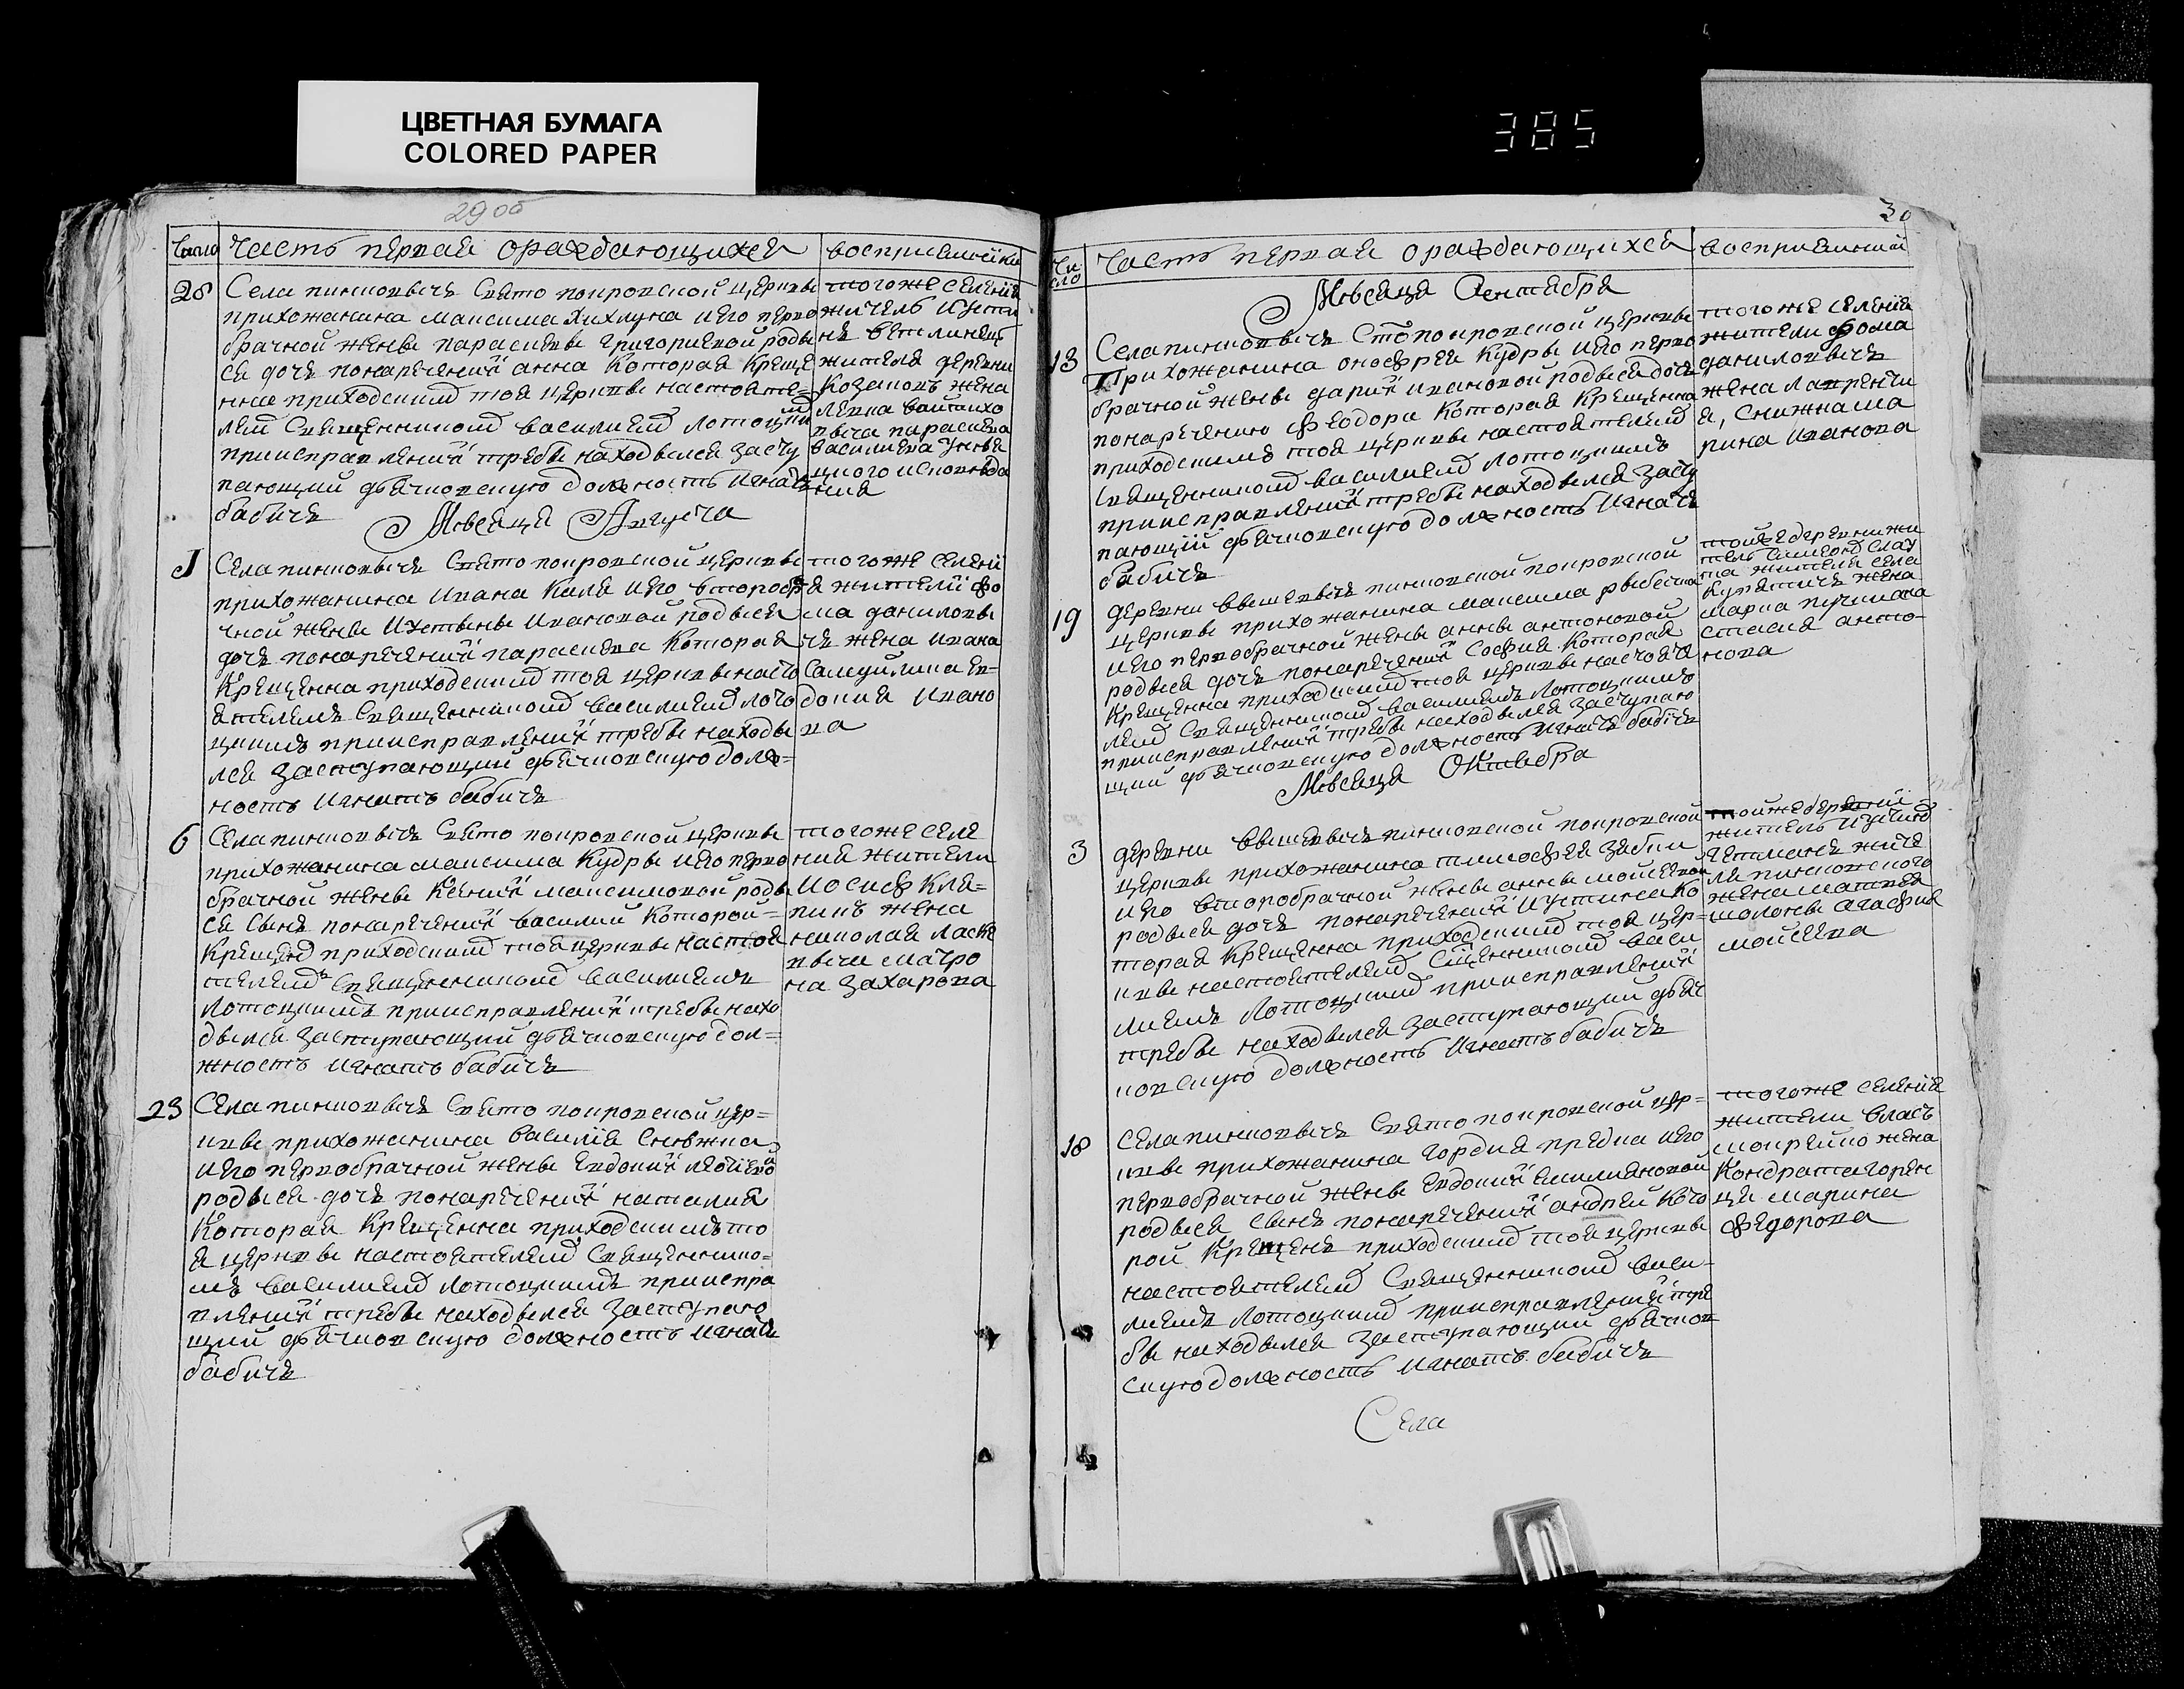 ЦВЕТНАЯ БУМАГА
COLORED PAPER
385
29 об
Число
Часть первая ораждающихся
восприемники
28
Села пинковичъ Свято покровской церкви
прихожанина максима хихлуна иего перво
брачной жены параскеви григориевой роди
ся дочь понаречении анна Которая Креще
нна приходскимъ тоя церкви настояте-
лем Священникомъ василиемъ Лотоцкимъ
приисправлении требы находылся засту
пающий дьячковскую должность игнатъ
бабичъ
тогоже селения
житель Иусти
нъ
жителя деревни
Козляковъ жена
василиева
Мѣсяца Августа
1
Села пинковичъ Свято покровской церкви
прихожанина ивана Каля иего второбра
чной жены Иустыны ивановой родылся
дочь понаречении параскева Которая
Крещенна приходскимъ тоя церкви насто
ятелемъ Священникомъ василиемъ лото
цкимъ приисправлении требы находы
лся заступающий дьячковскую долж=
ность игнатъ бабичъ
тогоже селени
я жители фо
ма данилови
чъ жена ивана
Самуйлика ев-
докия ивано
ва
6
Села пинковичъ Свято покровской церкви
прихожанина максима Кудры иего перво
брачной жены Ксении максимовой роды
ся сынъ понаречении василий Которой=
Крещенъ приходскимъ тоя церкви настоя
телемъ Священникомъ василиемъ
Лотоцкимъ приисправлении требы нахо
дылся заступающий дьячковскую дол=
жность игнатъ бабичъ
тогоже селе
ния жители
иосиф Кля=
пикъ жена
николая ласко
вича матро
на захарова
23
Села пинковичъ Свято покровской цер=
кви прихожанина василия Снѣжка
иего первобрачной жены Евдокии
родылся дочь понаречении наталия
Которая Крещенна приходскимъ то
я церкви настоятелемъ Священнико=
мъ василиемъ Лотоцкимъ прииспра
влении требы находылся заступаю
щий дьячковскую должность игнатъ
бабичъ
30
Число
Часть первая ораждающихся
восприемники
Мѣсяца Сентября
13
Села пинковичъ Сто покровской церкви
Прихожанина онофрея Кудры иего перво
брачной жены дарии ивановой родылся дочь
понаречению Феодора Которая Крещенна
приходскимъ тоя церкви настоятелемъ
Священникомъ василиемъ Лотоцкимъ
приисправлении требы находылся засту
пающий дьячковскую должность игнатъ
бабичъ
тогоже селения
жители Фома
даниловичъ
жена лаврентия
я, снижка ма
рина иванова
19
деревни вышевичъ пинковской покровской
церкви прихожанина максима рыбачка
иего первобрачной жены анны антоновой
родылся дочь понаречении София Которая
Крещенна приходскимъ тоя церкви настояте
лемъ Священникомъ василиемъ Лотоцкимъ
приисправлении требы находылся заступаю
щий дьячковскую должность игнатъ бабичъ
тойже деревни жи
тель
та жителя села
Купятичъ жена
марка
антo-
нова
Мѣсяца Октября
3
деревни вышевичъ пинковской покровской
церкви прихожанина тимофея
иего второбрачной жены анны мойсеевой
родылся дочь понаречении Иустина Ко
торая Крещенна приходскимъ тоя цер=
кви настоятелемъ Сщенникомъ васи
лиемъ Лотоцкимъ приисправлении
требы находылся заступающий дьяч
ковскую должность игнатъ бабичъ
тойже деревни
житель Иустинъ
гетманъ жите
ля пинковского
жена матвея
агафия
мойсеева
18
Села пинковичъ Свято покровской цер=
кви прихожанина гордия предка иего
первобрачной жены Евдокии Емилиановой
родылся сынъ понаречении андрей Кото
рой Крещенъ приходскимъ тоя церкви
настоятелемъ Священникомъ васи-
лиемъ Лотоцкимъ приисправлении тре
бы находылся заступающий дьячков
скую должность игнатъ бабичъ
тогоже селения
жители власъ
мокрейко жена
Кондрата горен
ца марина
федорова
Села